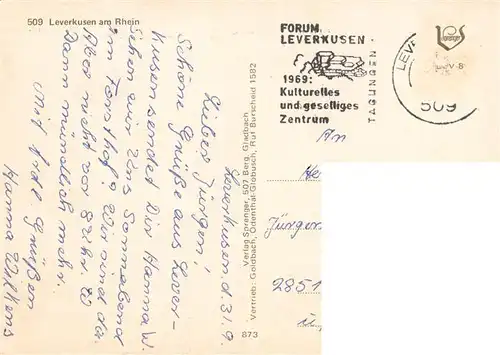 509 Leverkusen am Rhein
FORUM
LEVERKUSEN
1969:
Kulturelles
und geselliges
Zentrum
TAGUNGEN
LEV
509
Leverkusen d. 31.9.
Lieber Jürgen!
Schöne Grüße aus Lever-
kusen sendet Dir Hanna W.
Sehen wir uns Sonnabend
im Forsthof? Wir sind da.
Aber nicht vor 8 Uhr 80
Dann mündlich mehr.
Mit vtl Grüßen
Hanna Wilkens
Verlag Sprenger, 507 Berg. Gladbach
Vertrieb: Goldbach, Odenthal-Globusch, Ruf Burscheid 1582
873
An
He
Jürgen
2851